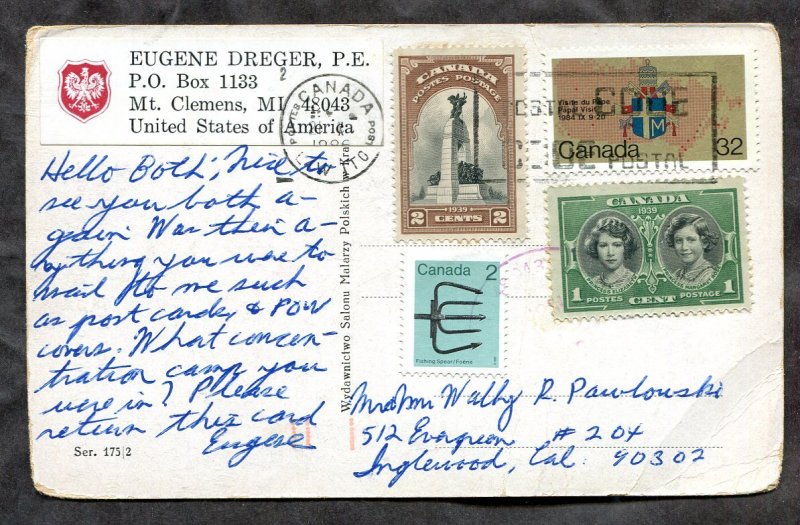 EUGENE DREGER, P.E.
P.O. Box 1133
Mt. Clemens, MI 48043
United States of America
Hello Both; Nice to
see you both a-
gain. Was their a-
nything you were to
mail to me such
as post cards, & POW
covers. What concen-
tration camp you
were in? Please
return this card
Eugene
Ser. 175|2
Wydawnictwo Salonu Malarzy Polskich w Kra
CANADA
POSTES POSTAGE
1939
2 CENTS 2
Visite du Pape
Papal Visit
1984 IX 9-20
Canada 32
CANADA
1939
1 POSTES CENT POSTAGE 1
Canada 2
Fishing Spear/Foëne
CANADA
POSTAL CODE
CODE POSTAL
Mr & Mrs Wally R. Pawlowski
512 Evergreen # 204
Inglewood, Cal. 90302